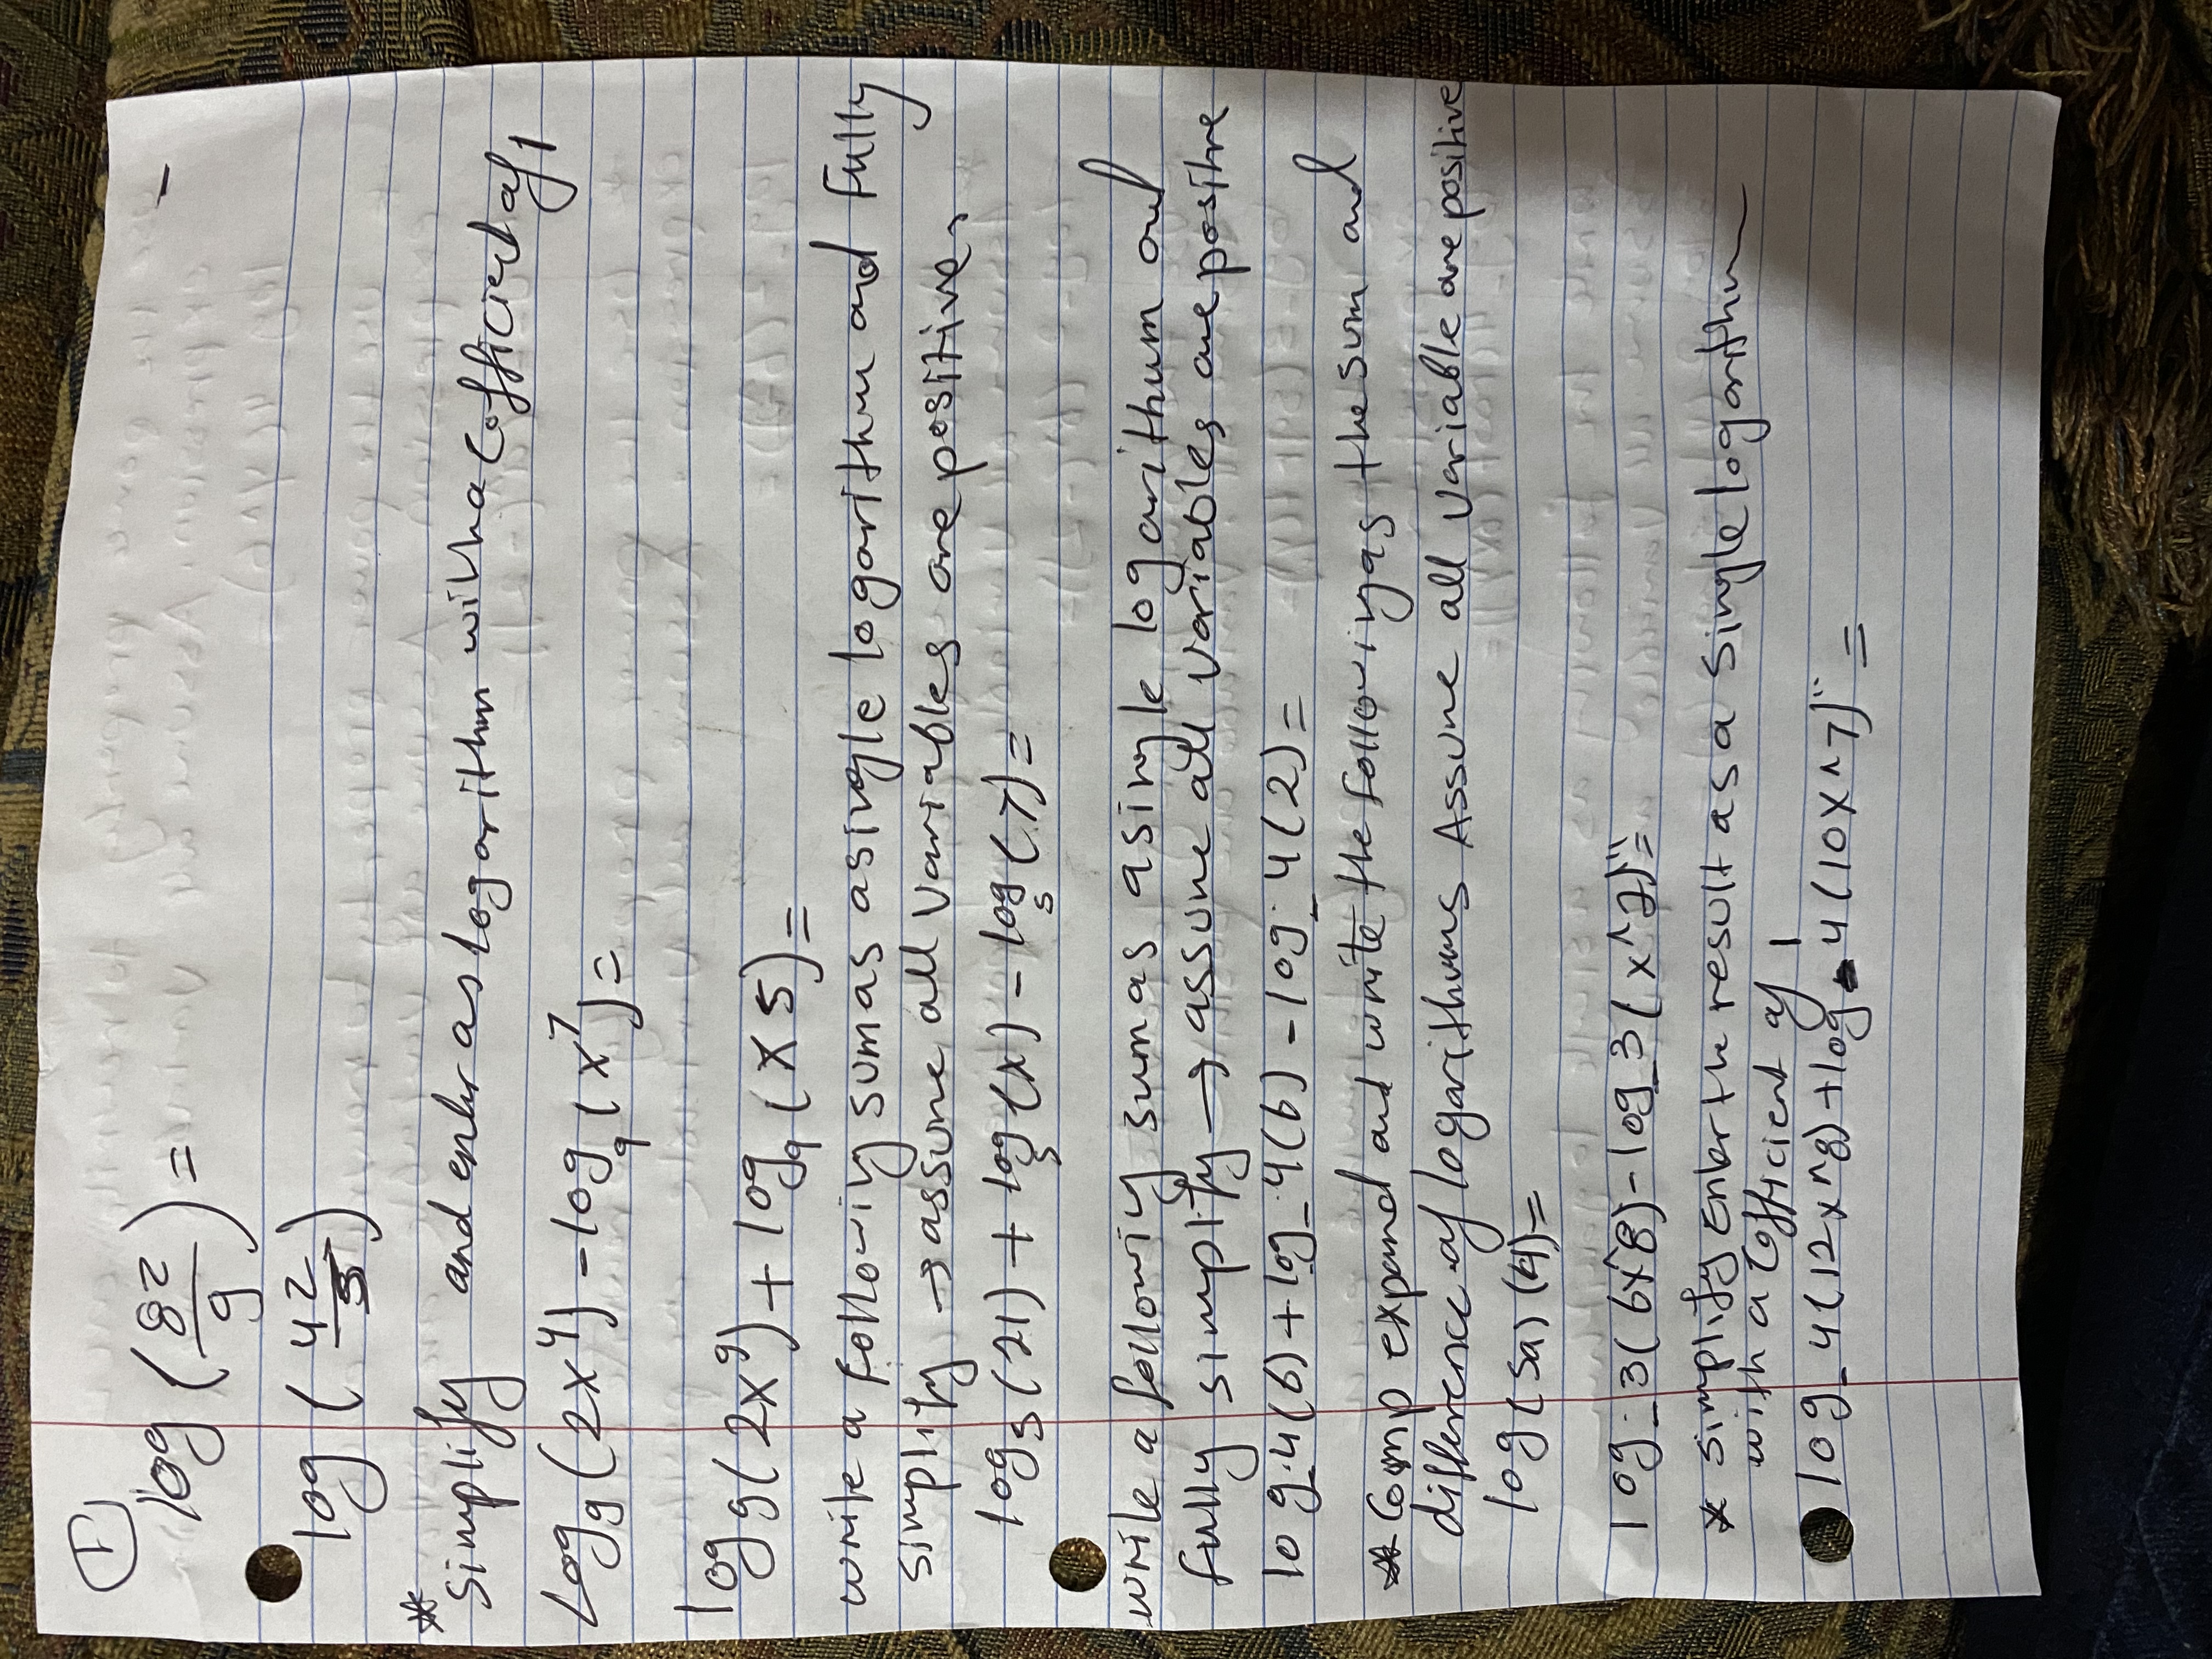 1
log (8z/9) =
log (4z/5)
* Simplify and enter as logarithm with a Cofficient of 1
Log₉(2x⁴) - log₉(x⁷) =
log₉(2x⁹) + log₉(x5) =
write a followiy sum as a single logarithm and Fully
simplify → assume all variables are positive,
log₅(21) + log₅(x) - log₅(7) =
write a followiy sum as a single logarithum and
fully simplify → assume all variables are positive
log_4(6) + log_4(b) - log_4(2) =
* Comp expand and write the following as the sum and
difference of logarithms Assume all variable are positive
log(5a)(4) =
log_3(6x^8) - log_3(x^2)" =
* simplify Enter the result as a single logarithm
with a Cofficient of 1
log_4(12x^8) + log_4(10x^7)" =